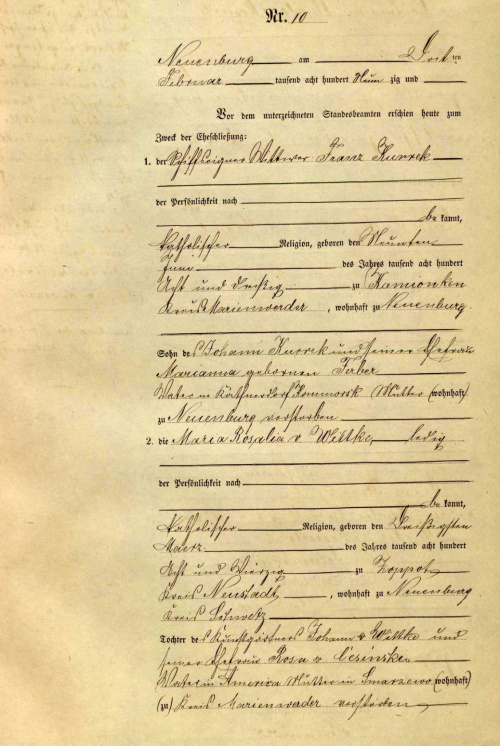 Nr. 10
Neuenburg am Dritten
Februar tausend acht hundert Neunzig und
Vor dem unterzeichneten Standesbeamten erschien heute zum
Zweck der Eheschließung:
1. der Schiffseigner Wittwer Franz Kurrek
der Persönlichkeit nach
bekannt,
katholischer Religion, geboren den Neunten
Juni des Jahres tausend acht hundert
Acht und dreißig zu Kamionken
Kreis Marienwerder, wohnhaft zu Neuenburg.
Sohn des Johann Kurrek und seiner Ehefrau
Marianna gebornen Ferber
Vater in Käthnerdorf Kommorsk Mutter (wohnhaft)
zu Neuenburg verstorben
2. die Maria Rosalia v. Wittke, ledig
der Persönlichkeit nach
bekannt,
katholischer Religion, geboren den Dreißigsten
Maerz des Jahres tausend acht hundert
Acht und Vierzig zu Zoppot
Kreis Neustadt, wohnhaft zu Neuenburg
Kreis Schwetz
Tochter des Kunstgärtners Johann v Wittke und
seiner Ehefrau Rosa v
Vater in America Mutter in Smarzewo (wohnhaft)
(zu) Kreis Marienwerder verstorben